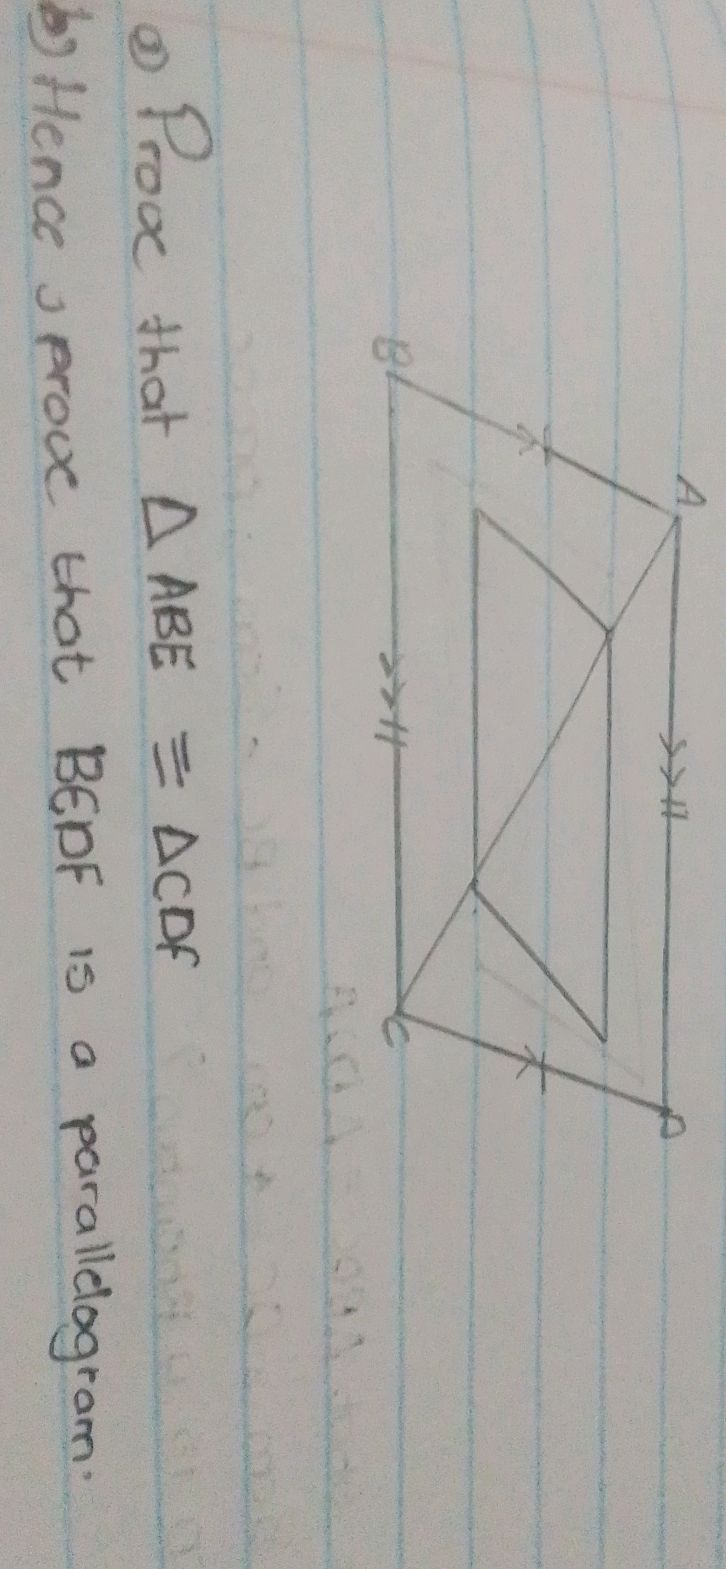 A
D
B
C
a) Prove that Δ ABE ≡ ΔCDF
b) Hence, prove that BEDF is a parallelogram.